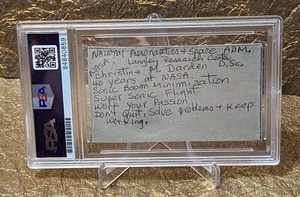 84840859
PSA
PSA
National Aeronautics + Space ADM.
NASA, Langley Research Center
Christine M. Darden D.Sc.
40 years at NASA
Sonic Boom Minimization
Super Sonic Flight
Work Your Passion
Don't Quit, Solve problems + Keep
working.